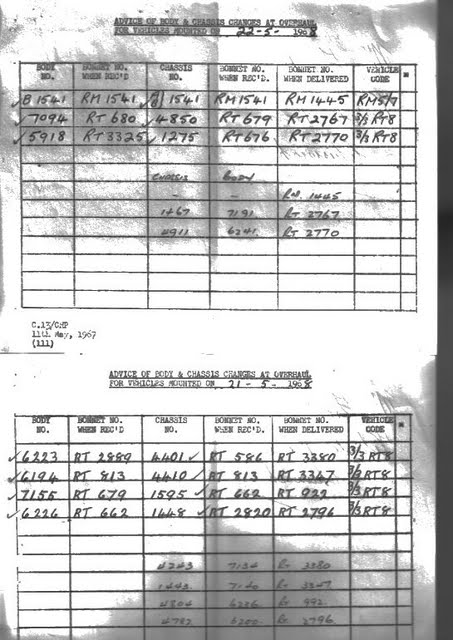 ADVICE OF BODY & CHASSIS CHANGES AT OVERHAUL
FOR VEHICLES MOUNTED ON 22-5-1968
BODY NO. BONNET NO. WHEN REC'D CHASSIS NO. BONNET NO. WHEN REC'D. BONNET NO. WHEN DELIVERED VEHICLE CODE *
✓ B1541 RM 1541 1541 RM 1541 RM 1445 RM5/7
✓ 7094 RT 680 ✓ 4850 RT 679 RT 2767 3/3 RT8
✓ 5918 RT 3325 ✓ 1275 RT 676 RT 2770 3/3 RT8
CHASSIS BODY
– RM 1445
1467 7191 RT 2767
4911 6241 RT 2770
C.13/CHP
11th May, 1967
(111)
ADVICE OF BODY & CHASSIS CHANGES AT OVERHAUL
FOR VEHICLES MOUNTED ON 21-5-1968
BODY NO. BONNET NO. WHEN REC'D CHASSIS NO. BONNET NO. WHEN REC'D. BONNET NO. WHEN DELIVERED VEHICLE CODE *
✓ 6223 RT 2889 4401 ✓ RT 586 RT 3380 3/3 RT8
✓ 6194 RT 813 4410 ✓ RT 813 RT 3347 3/3 RT8
✓ 7155 RT 679 1595 ✓ RT 662 RT 922 3/3 RT8
✓ 6226 RT 662 1448 ✓ RT 2820 RT 2796 3/3 RT8
4243 7134 RT 3380
1443 7140 RT 3347
4804 6236 RT 992
4782 6200 RT 2796